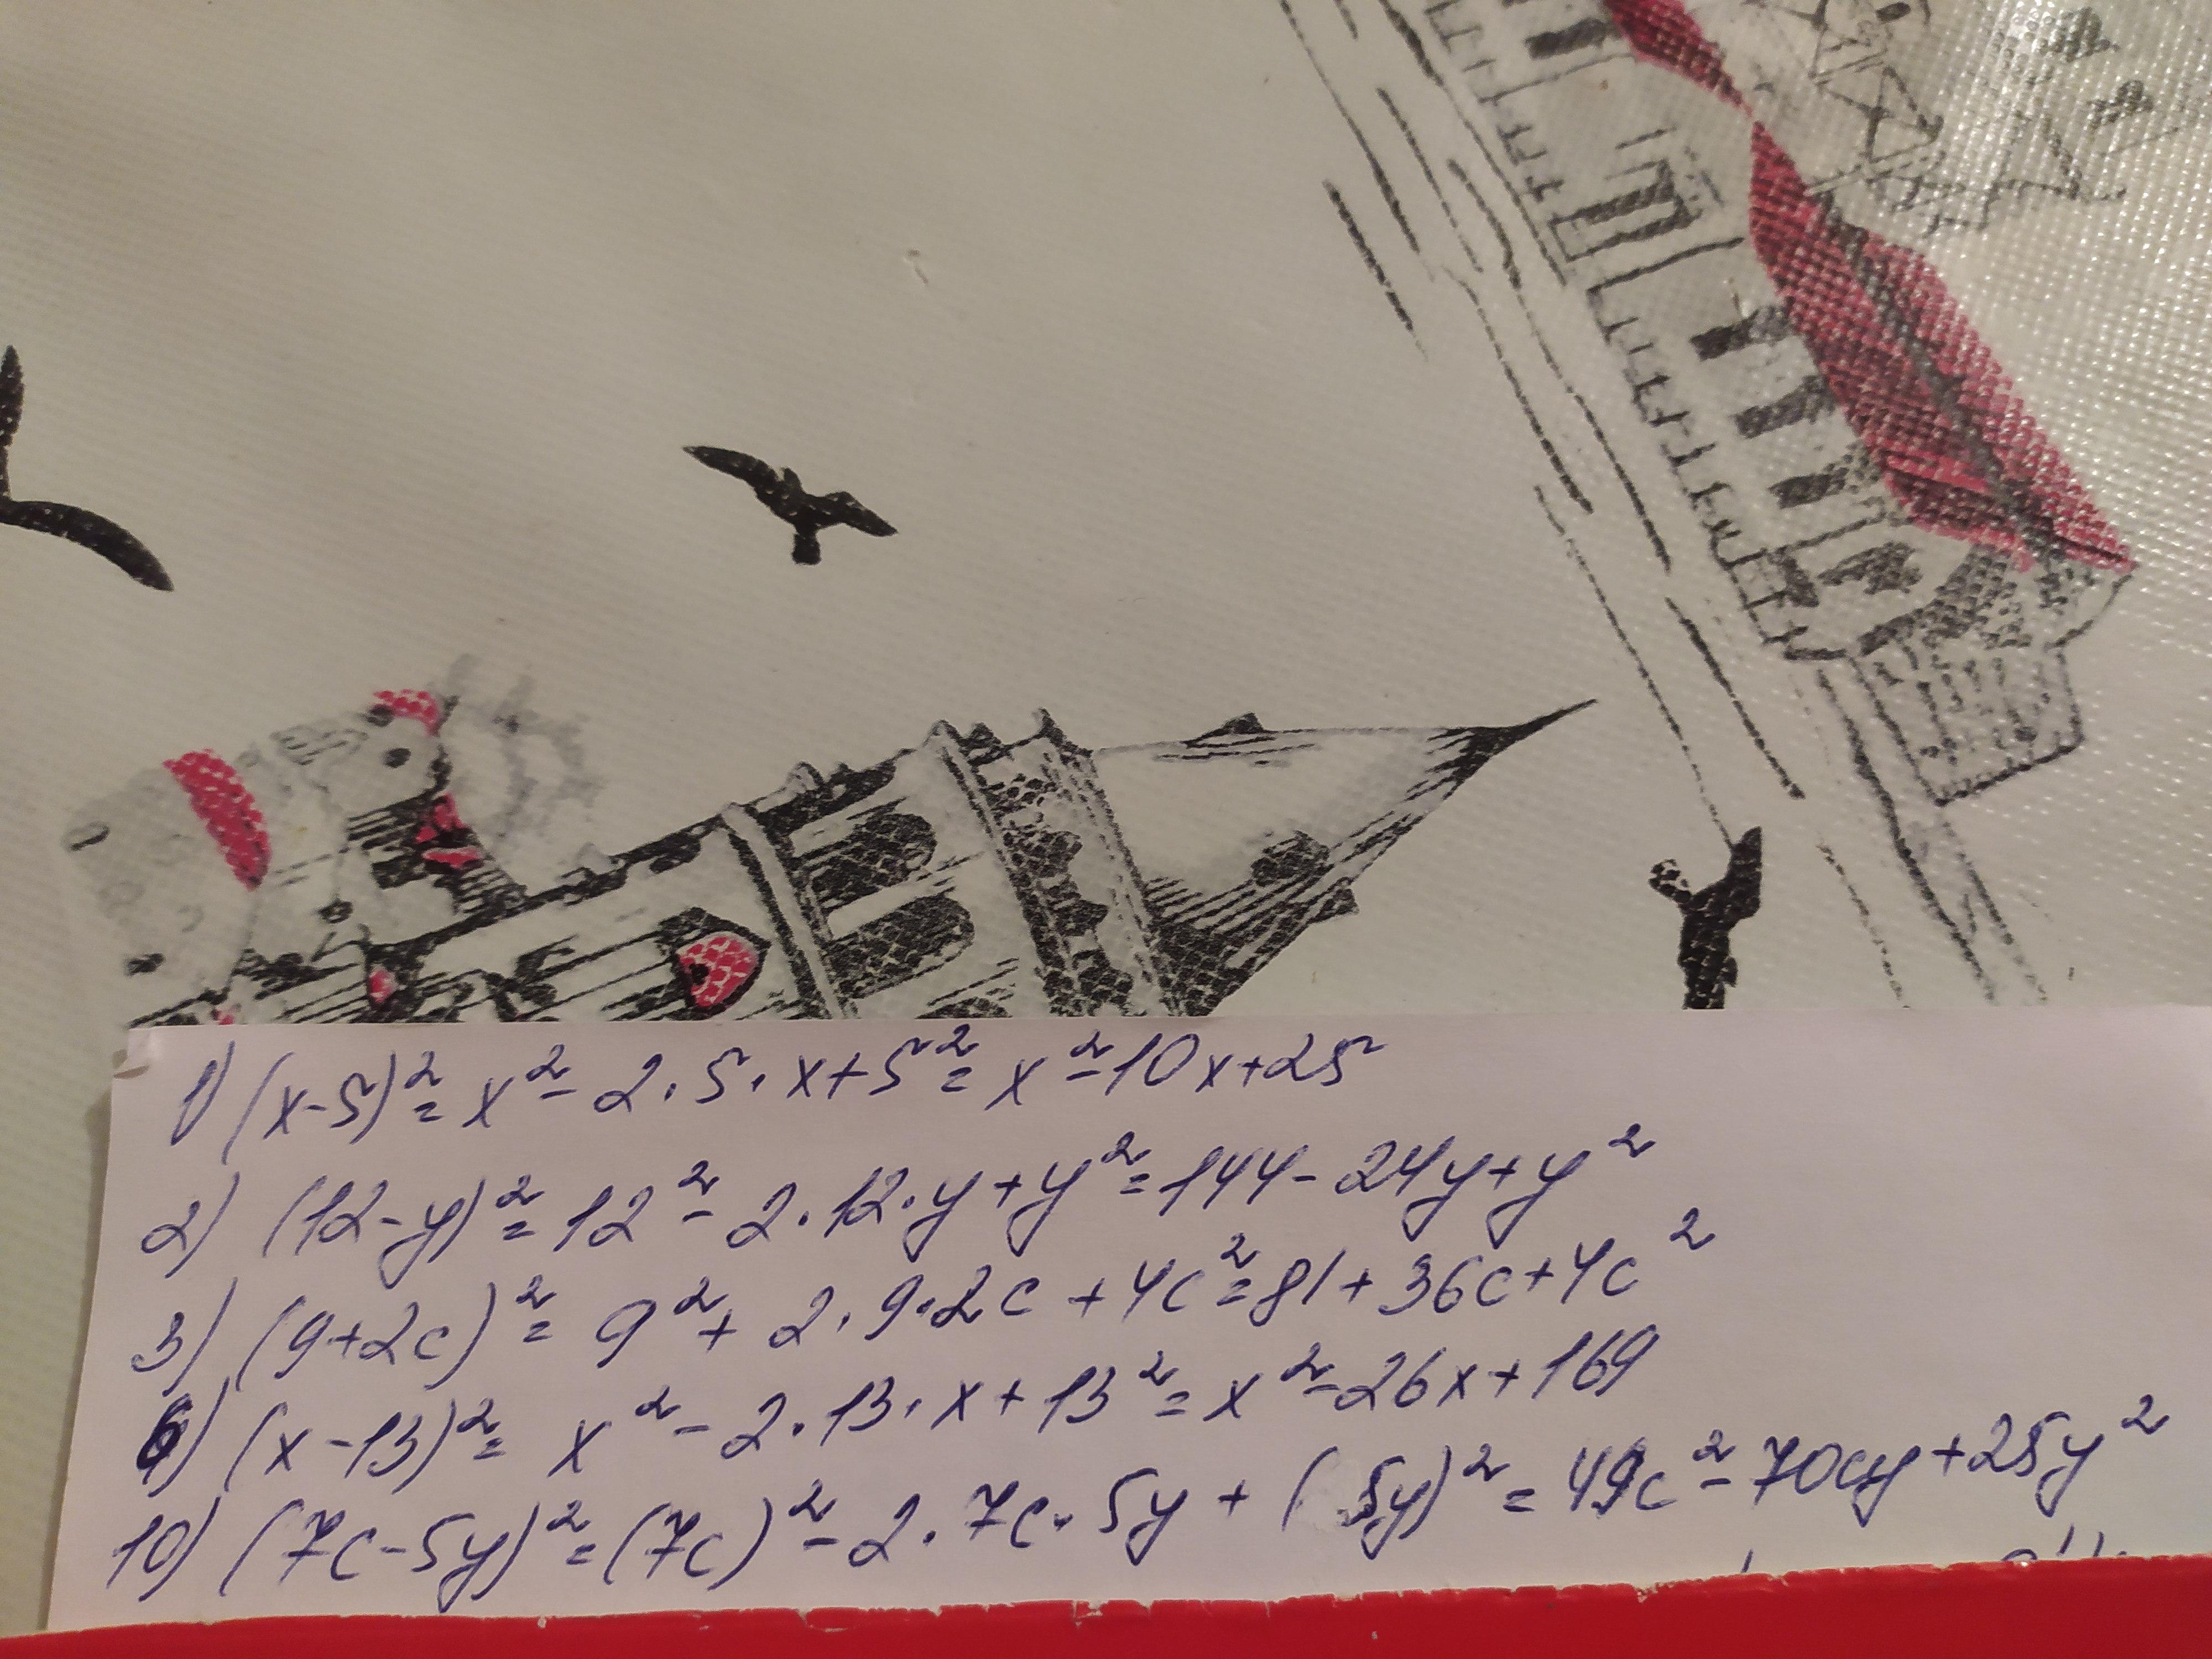 1) (x-5)² = x² - 2·5·x+5² = x² - 10x+25
2) (12-y)² = 12² - 2·12·y+y² = 144-24y+y²
3) (9+2c)² = 9² + 2·9·2c +4c² = 81+36c+4c²
6) (x-13)² = x² - 2·13·x+13² = x² - 26x+169
10) (7c-5y)² = (7c)² - 2·7c·5y + (5y)² = 49c² - 70cy+25y²